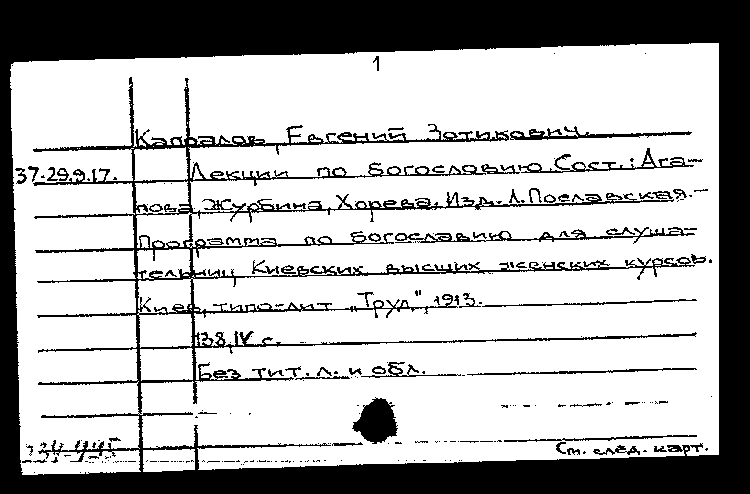 1
Капралов, Евгений Зотикович.
37-29.9.17. Лекции по богословию. Сост.: Ага-
пова, Журбина, Хорева. Изд. Л. Пославская.-
Программа по богославию для слуша-
тельниц Киевских высших женских курсов.
Киев, типо-лит „Труд", 1913.
138, IV с.
Без тит. л. и обл.
См. след. карт.